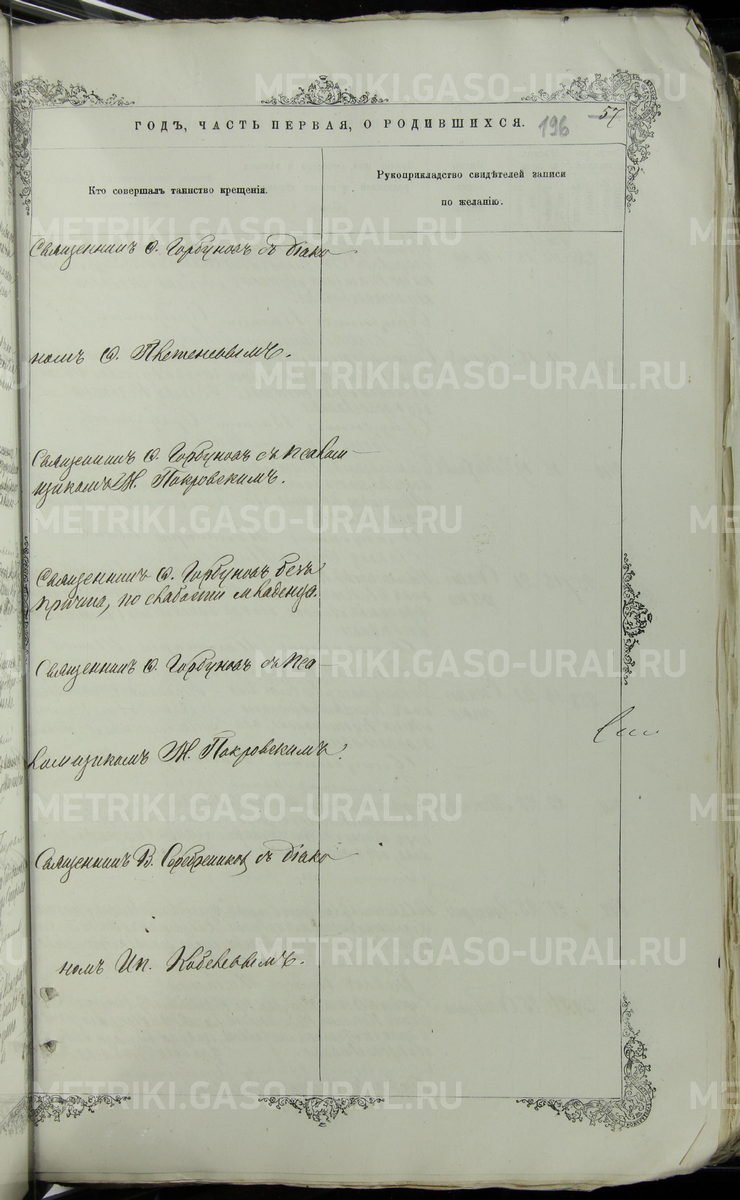 METRIKI.GASO-URAL.RU
ГОДЪ, ЧАСТЬ ПЕРВАЯ, О РОДИВШИХСЯ.
196
57
Кто совершалъ таинство крещенія.
Рукоприкладство свидѣтелей записи
по желанію.
Священникъ Ѳ. Горбуновъ съ діако
номъ
Священникъ Ѳ. Горбуновъ съ псалом-
щикомъ Н. Покровскимъ.
Священникъ Ѳ. Горбуновъ безъ
причта, по слабости младенца.
Священникъ Ѳ. Горбуновъ съ пса-
ломщикомъ Н. Покровскимъ.
Священникъ В. Серебренниковъ съ діако
номъ Ип. Кобелевымъ.